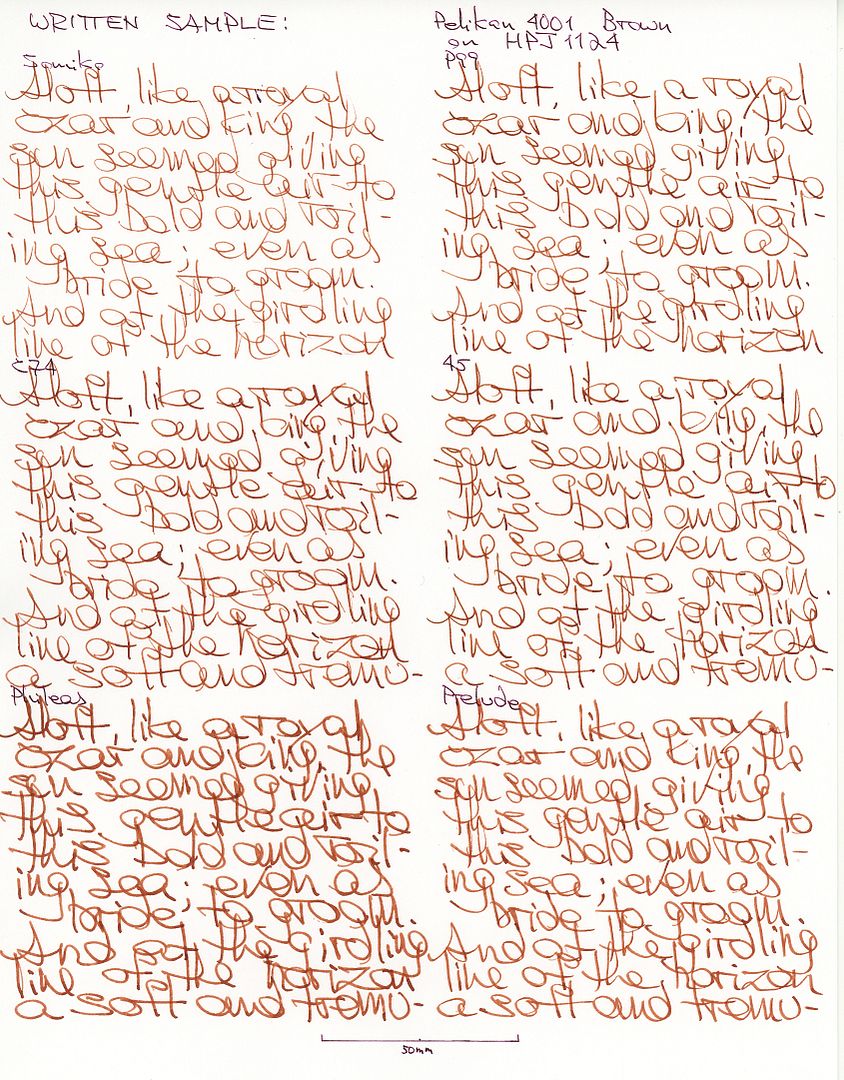 WRITTEN SAMPLE:
Pelikan 4001 Brown
on HPJ1124
Somiko
Aloft, like a royal
czar and king, the
sun seemed giving
this gentle air to
this bold and roil-
ing sea; even as
bride to groom.
And at the girdling
line of the horizon
P99
Aloft, like a royal
czar and king, the
sun seemed giving
this gentle air to
this bold and roil-
ing sea; even as
bride to groom.
And at the girdling
line of the horizon
C74
Aloft, like a royal
czar and king, the
sun seemed giving
this gentle air to
this bold and roil-
ing sea; even as
bride to groom.
And at the girdling
line of the horizon
a soft and tremu-
45
Aloft, like a royal
czar and king, the
sun seemed giving
this gentle air to
this bold and roil-
ing sea; even as
bride to groom.
And at the girdling
line of the horizon
a soft and tremu-
Phileas
Aloft, like a royal
czar and king, the
sun seemed giving
this gentle air to
this bold and roil-
ing sea; even as
bride, to groom.
And at the girdling
line of the horizon
a soft and tremu-
Prelude
Aloft, like a royal
czar and king, the
sun seemed giving
this gentle air to
this bold and roil-
ing sea; even as
bride to groom.
And at the girdling
line of the horizon
a soft and tremu-
50mm